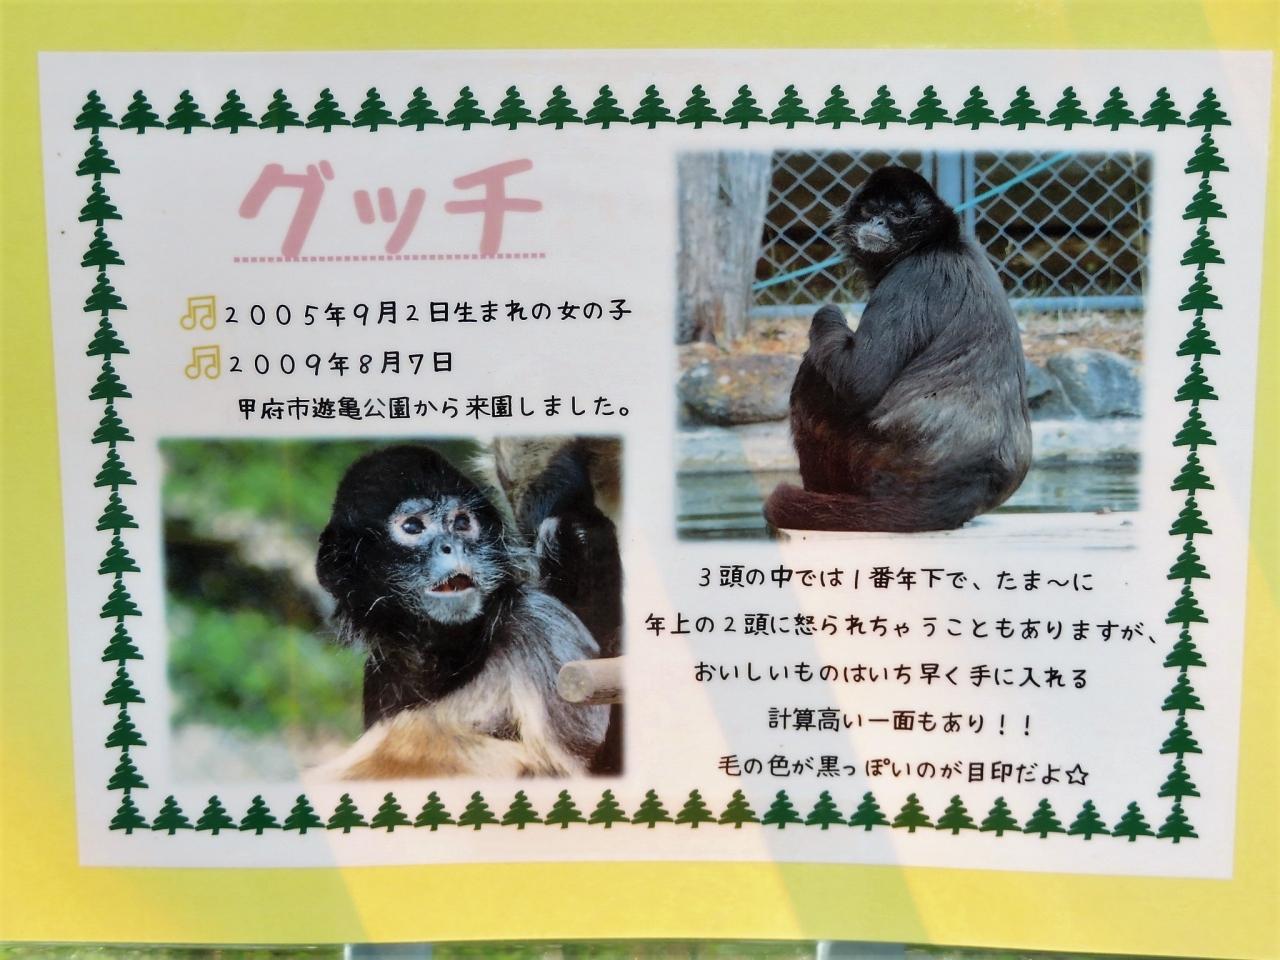 グッチ
2005年9月2日生まれの女の子
2009年8月7日
甲府市遊亀公園から来園しました。
3頭の中では1番年下で、たま〜に
年上の2頭に怒られちゃうこともありますが、
おいしいものはいち早く手に入れる
計算高い一面もあり！！
毛の色が黒っぽいのが目印だよ☆